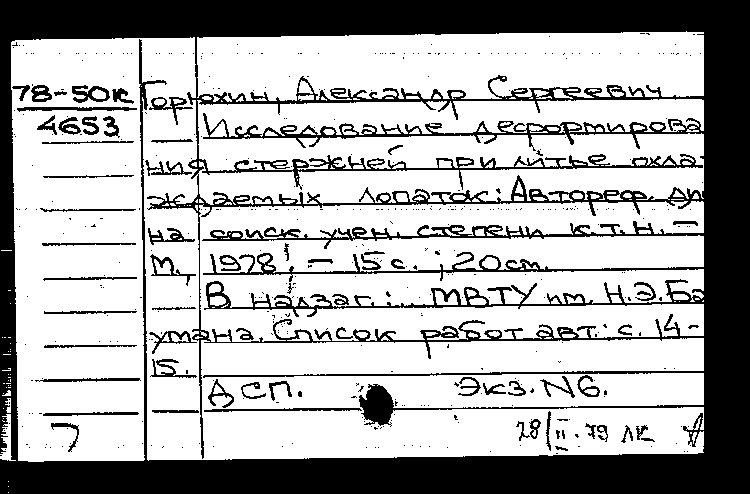 78-50к Горюхин, Александр Сергеевич.
4653 Исследование деформирова
ния стержней при литье охла-
ждаемых лопаток: Автореф. ди
на соиск. учен. степени к.т.н. —
М., 1978. — 15 с.; 20 см.
В надзаг.: МВТУ им. Н.Э.Ба
умана. Список работ авт.: с. 14-
15.
ДСП. Экз. N6.
28/II.79 ЛК